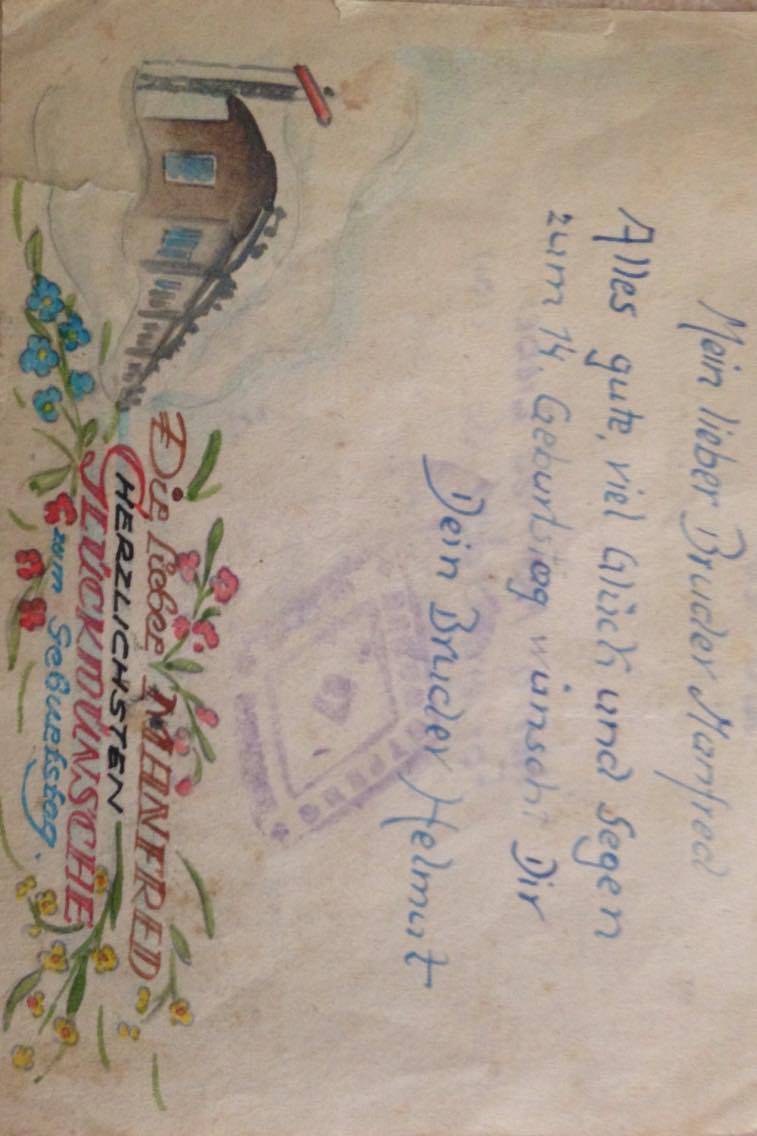 Mein lieber Bruder Manfred
Alles gute, viel Glück und Segen
zum 14. Geburtstag wünscht Dir
Dein Bruder Helmut
Dir lieber MANFRED
HERZLICHSTEN
GLÜCKWÜNSCHE
zum Geburtstag.